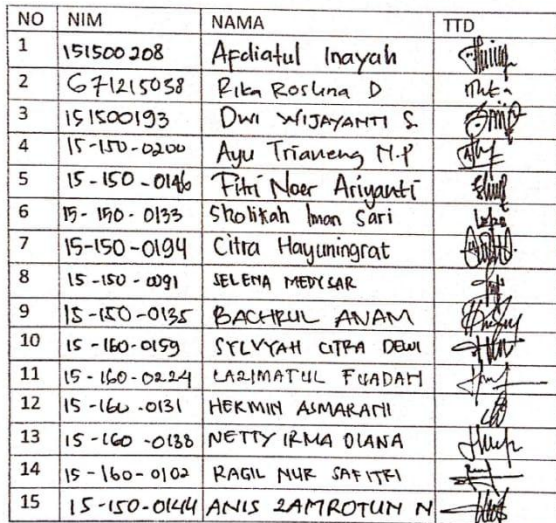 NO NIM NAMA TTD
1 151500208 Afdliatul Inayah
2 671215038 Rika Roslina D
3 151500193 DWI WIJAYANTI S
4 15-150-0200 Ayu Trianeng M.P
5 15-150-0146 Fitri Noer Ariyanti
6 15-150-0133 Sholikah Iman Sari
7 15-150-0194 Citra Hayuningrat
8 15-150-0091 SELENA MEDYSAR
9 15-150-0135 BACHRUL ANAM
10 15-160-0159 SYLVYAH CITRA DEWI
11 15-160-0224 LAZIMATUL FUADAH
12 15-160-0131 HERMIN ASMARANI
13 15-160-0138 NETTY IRMA DIANA
14 15-160-0102 RAGIL NUR SAFITRI
15 15-150-0144 ANIS ZAMROTUN N